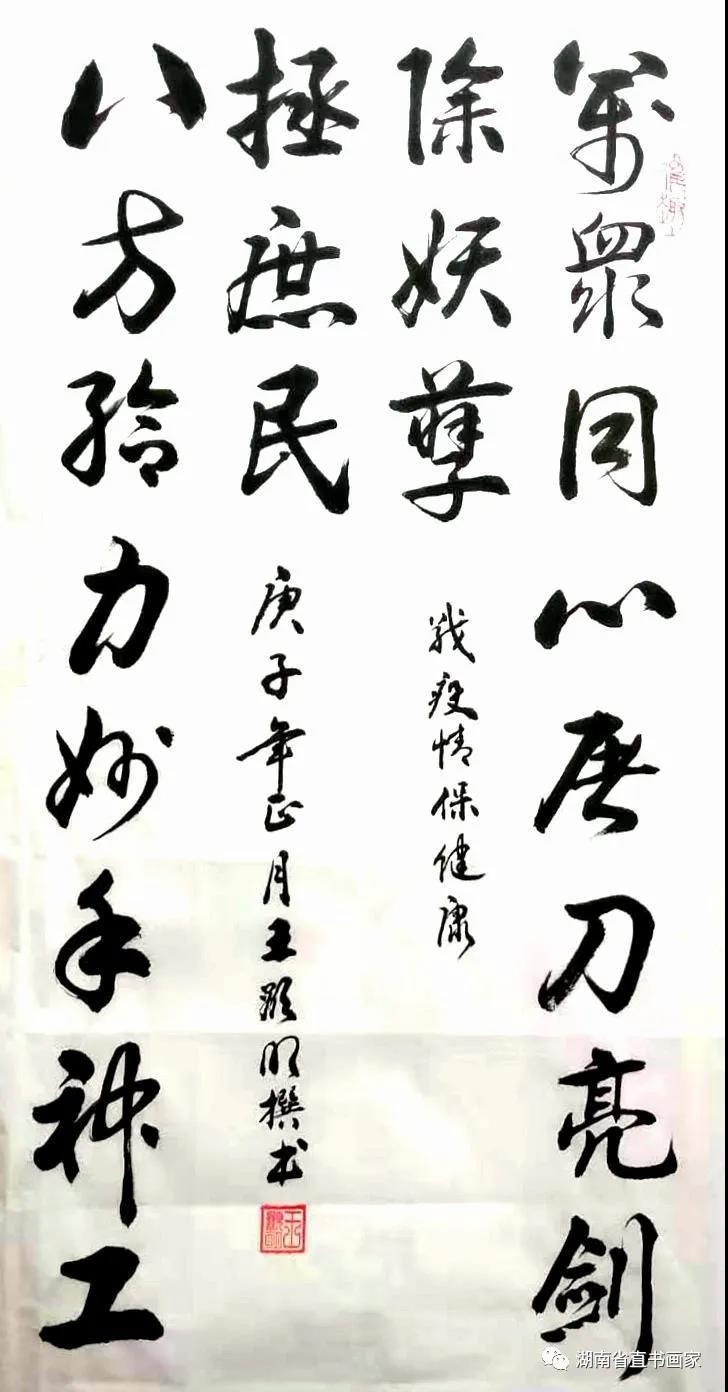 萬眾同心刀亮劍
除妖孽
战疫情保健康
八方力妙手神工
拯庶民
庚子年正月王明撰书
湖南省直书画家